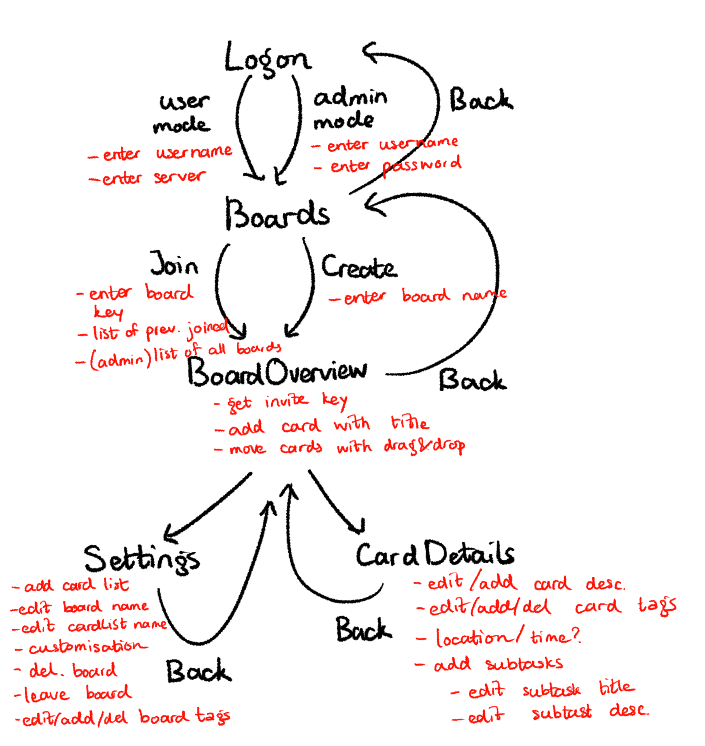 Logon
user
mode
- enter username
- enter server
admin
mode
- enter username
- enter password
Back
Boards
Join
- enter board
key
- list of prev. joined
- (admin) list of all boards
Create
- enter board name
Back
BoardOverview
- get invite key
- add card with title
- move cards with drag&drop
Settings
- add card list
- edit board name
- edit cardlist name
- customisation
- del. board
- leave board
- edit/add/del board tags
Back
CardDetails
- edit/add card desc.
- edit/add/del card tags
- location/time?
- add subtasks
- edit subtask title
- edit subtast desc.
Back